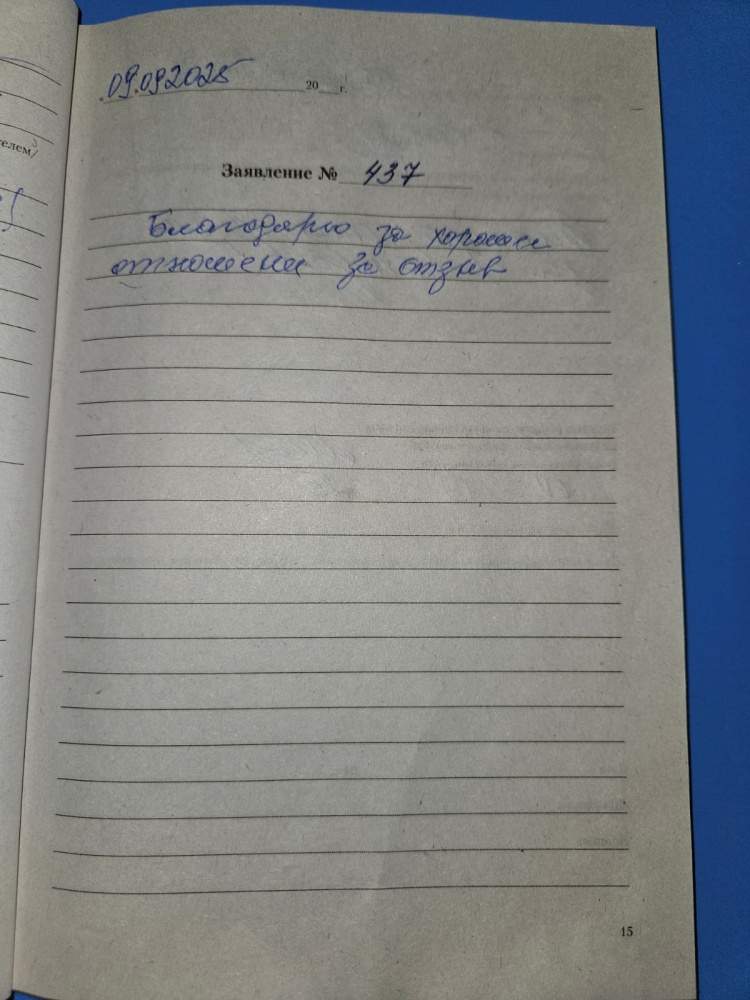 09.09.2025 20 г.
телем/
Заявление № 437
Благодарю за хорошее
отношение за отзыв
15